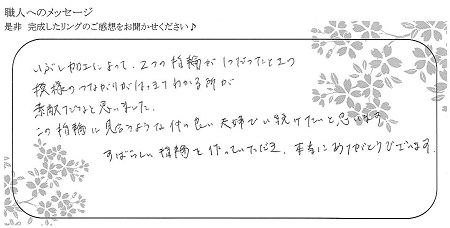 職人へのメッセージ
是非 完成したリングのご感想をお聞かせください♪
いぶし加工によって、2つの指輪が1つだったという
模様のつながりがはっきりわかる所が
素敵だなぁと思いました。
この指輪に見合うような仲の良い夫婦でい続けたいと思います
すばらしい指輪を作っていただき、本当にありがとうございます。